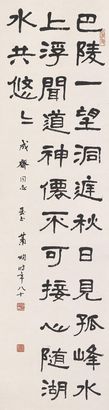 巴陵一望洞庭秋日見孤峰水
上浮聞道神僊不可接心隨湖
水共悠〻
同志
蕭嫻時年八十